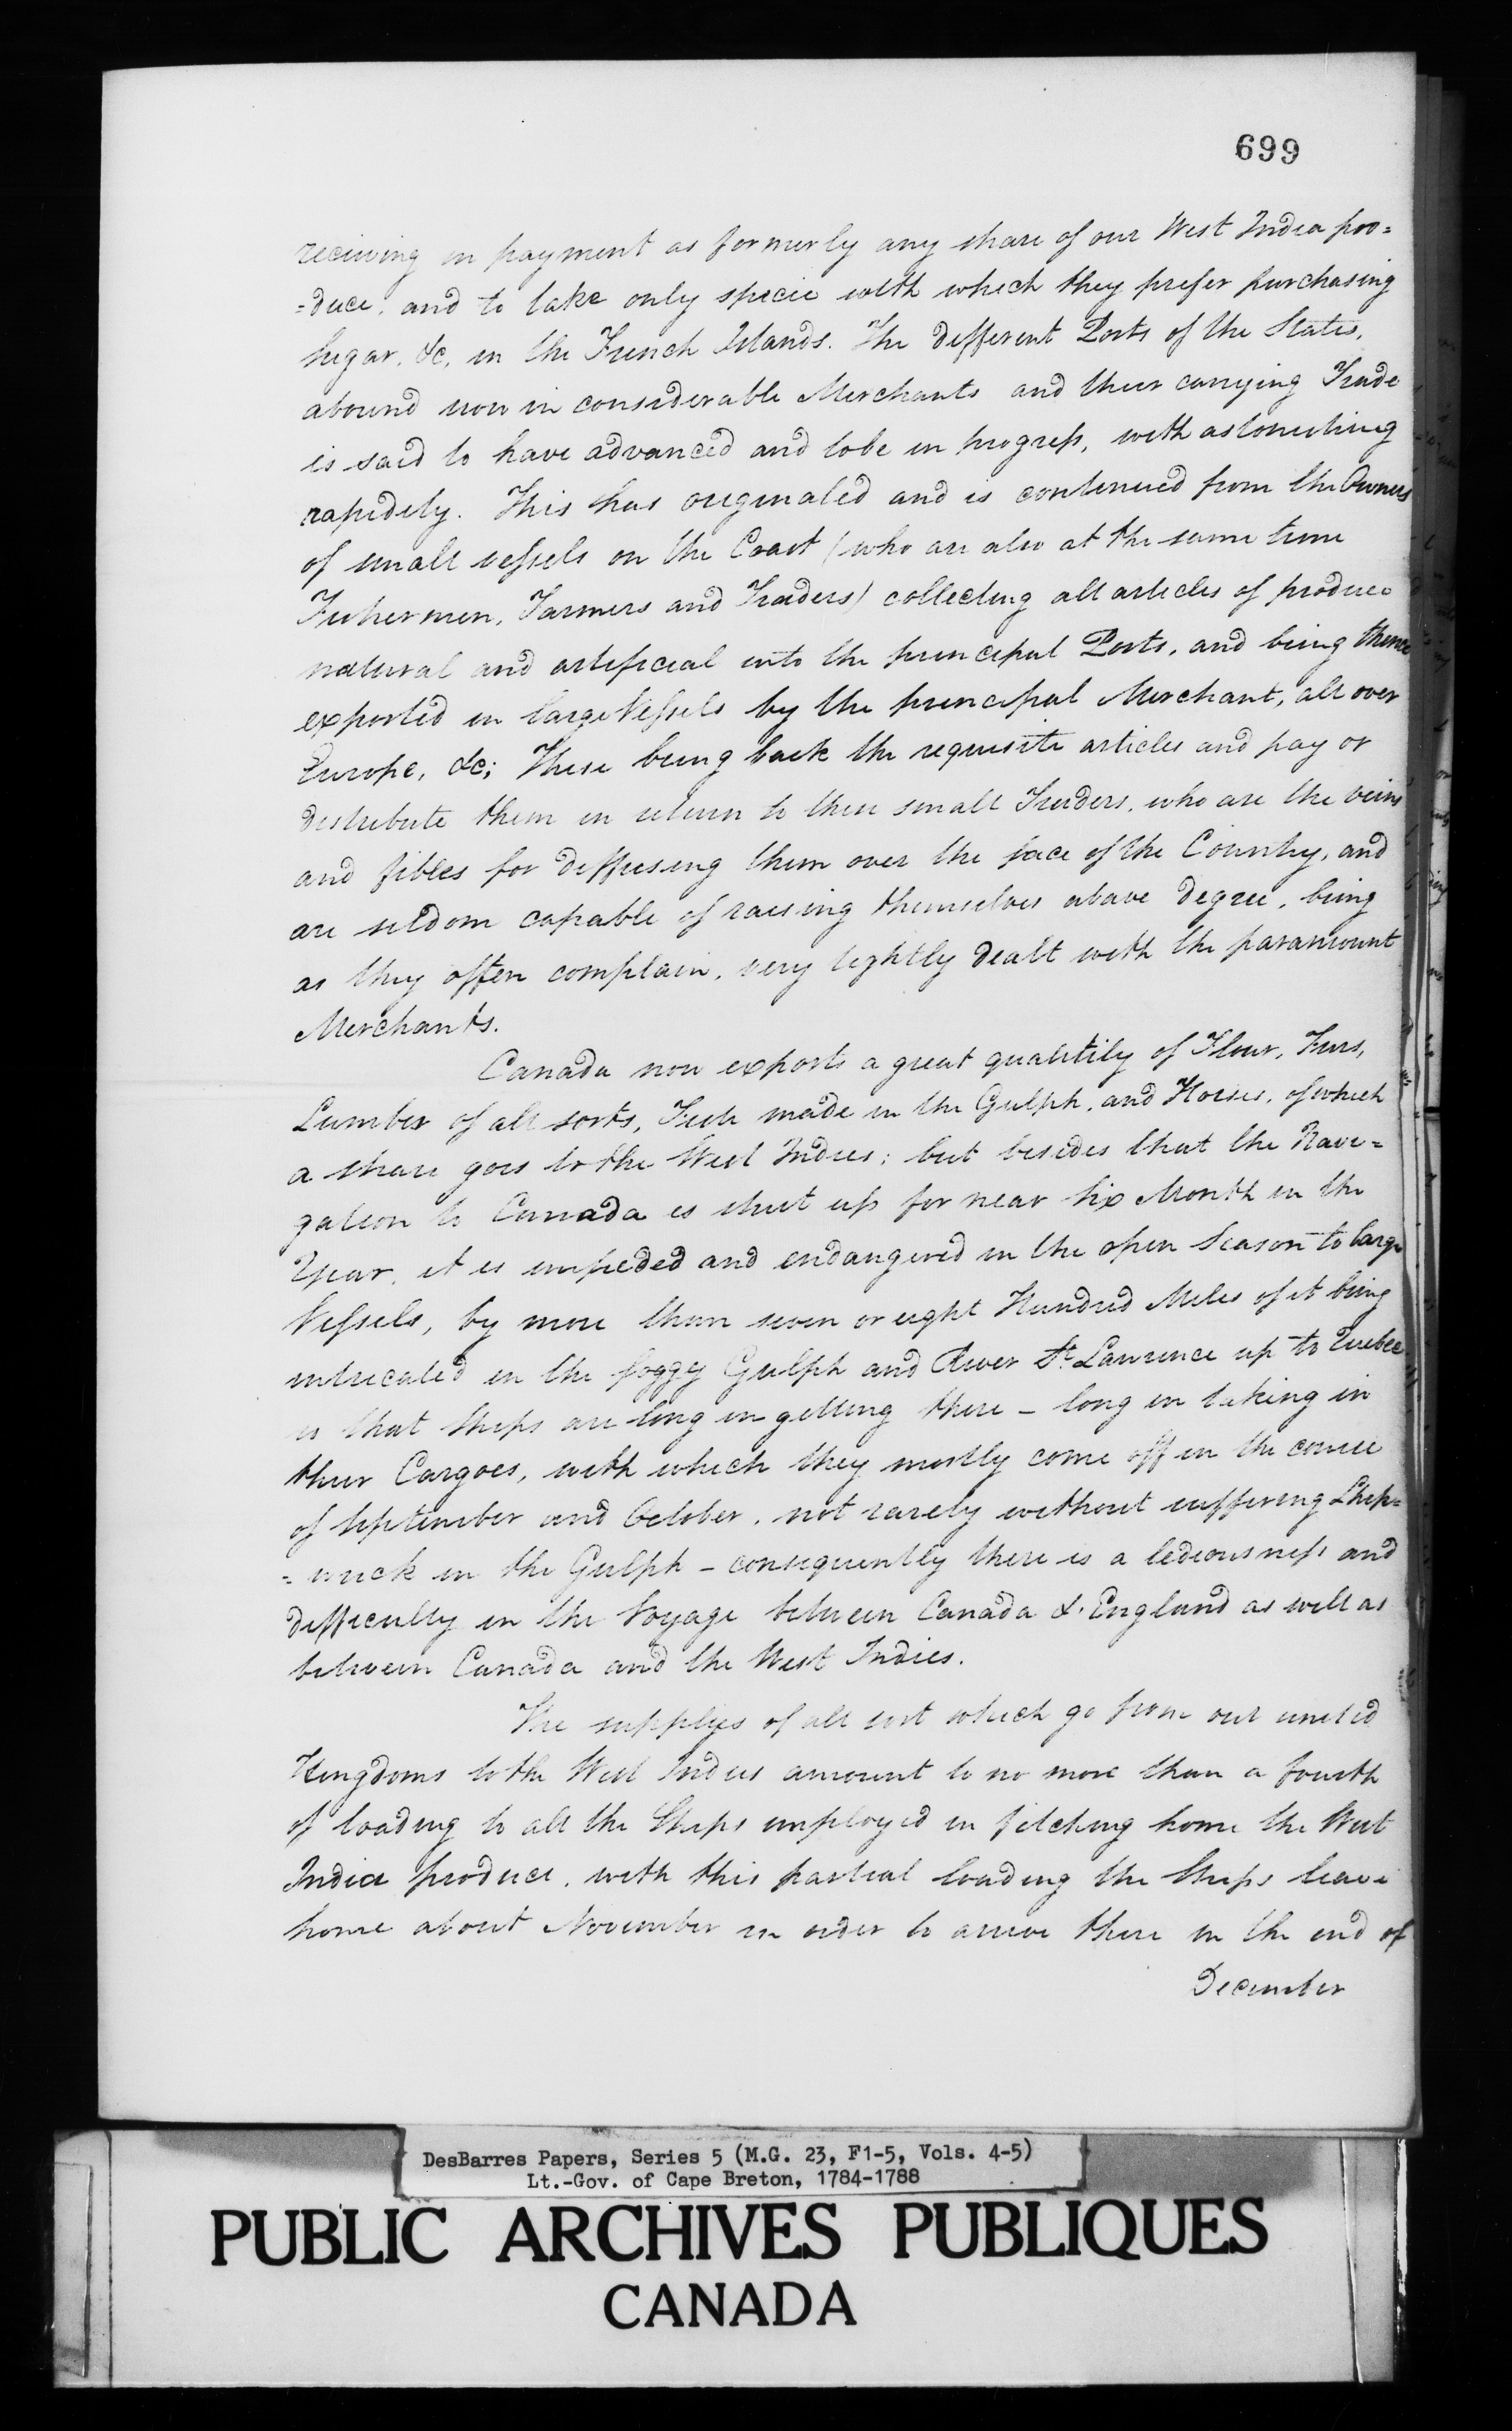 699
receiving in payment as formerly any share of our West India pro=
=duce, and to take only specie with which they prefer purchasing
Sugar, &c, in the French Islands. The different Ports of the States,
abound now in considerable Merchants and their carrying Trade
is said to have advanced and to be in progress, with astonishing
rapidity. This has originated and is continued from the Owners
of small vessels on the Coast (who are also at the same time
Fishermen, Farmers and Traders) collecting all articles of produce
natural and artificial into the principal Ports, and being thence
exported in large Vessels by the principal Merchant, all over
Europe, &c; These bring back the requisite articles and pay or
distribute them in return to their small Traders, who are the veins
and fibres for diffusing them over the face of the Country, and
are seldom capable of raising themselves above degree, being
as they often complain, very tightly dealt with the paramount
Merchants.
Canada now exports a great quantity of Flour, Furs,
Lumber of all sorts, Fish made in the Gulph, and Horses, of which
a share goes to the West Indies; but besides that the Navi=
gation to Canada is shut up for near six Month in the
Year, it is impeded and endangered in the open Season to large
Vessels, by more than seven or eight Hundred Miles of it being
intricated in the foggy Gulph and River St. Lawrence up to Quebec
is that Ships are long in getting there – long in taking in
their Cargoes, with which they mostly come off in the course
of September and October, not rarely without suffering Ship=
=wreck in the Gulph – consequently there is a tediousness and
difficulty in the Voyage between Canada & England as well as
between Canada and the West Indies.
The supplies of all sort which go from our united
Kingdoms to the West Indies amount to no more than a fourth
of loading to all the Ships employed in fetching home the West
India produce, with this partial loading the Ships leave
home about November in order to arrive there in the end of
December
DesBarres Papers, Series 5 (M.G. 23, F1-5, Vols. 4-5)
Lt.-Gov. of Cape Breton, 1784-1788
PUBLIC ARCHIVES PUBLIQUES
CANADA